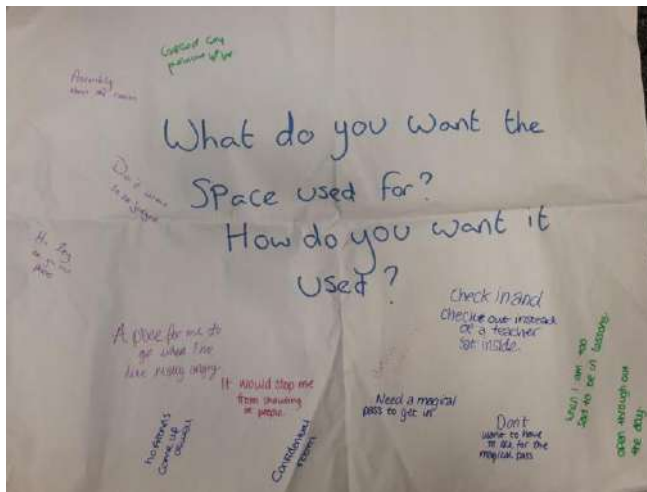 Assembly
What do you want the
Space used for?
How do you want it
used?
Don't want
to be judged
A place for me to
go when I'm
like really angry
It would stop me
from shouting
at people
Check in and
check out instead
of a teacher
sat inside.
Need a magical
pass to get in
Dont
want to have
to ask for the
magical pass
when I am too
sad to be in lessons
open through out
the day
Confidential
room
come up